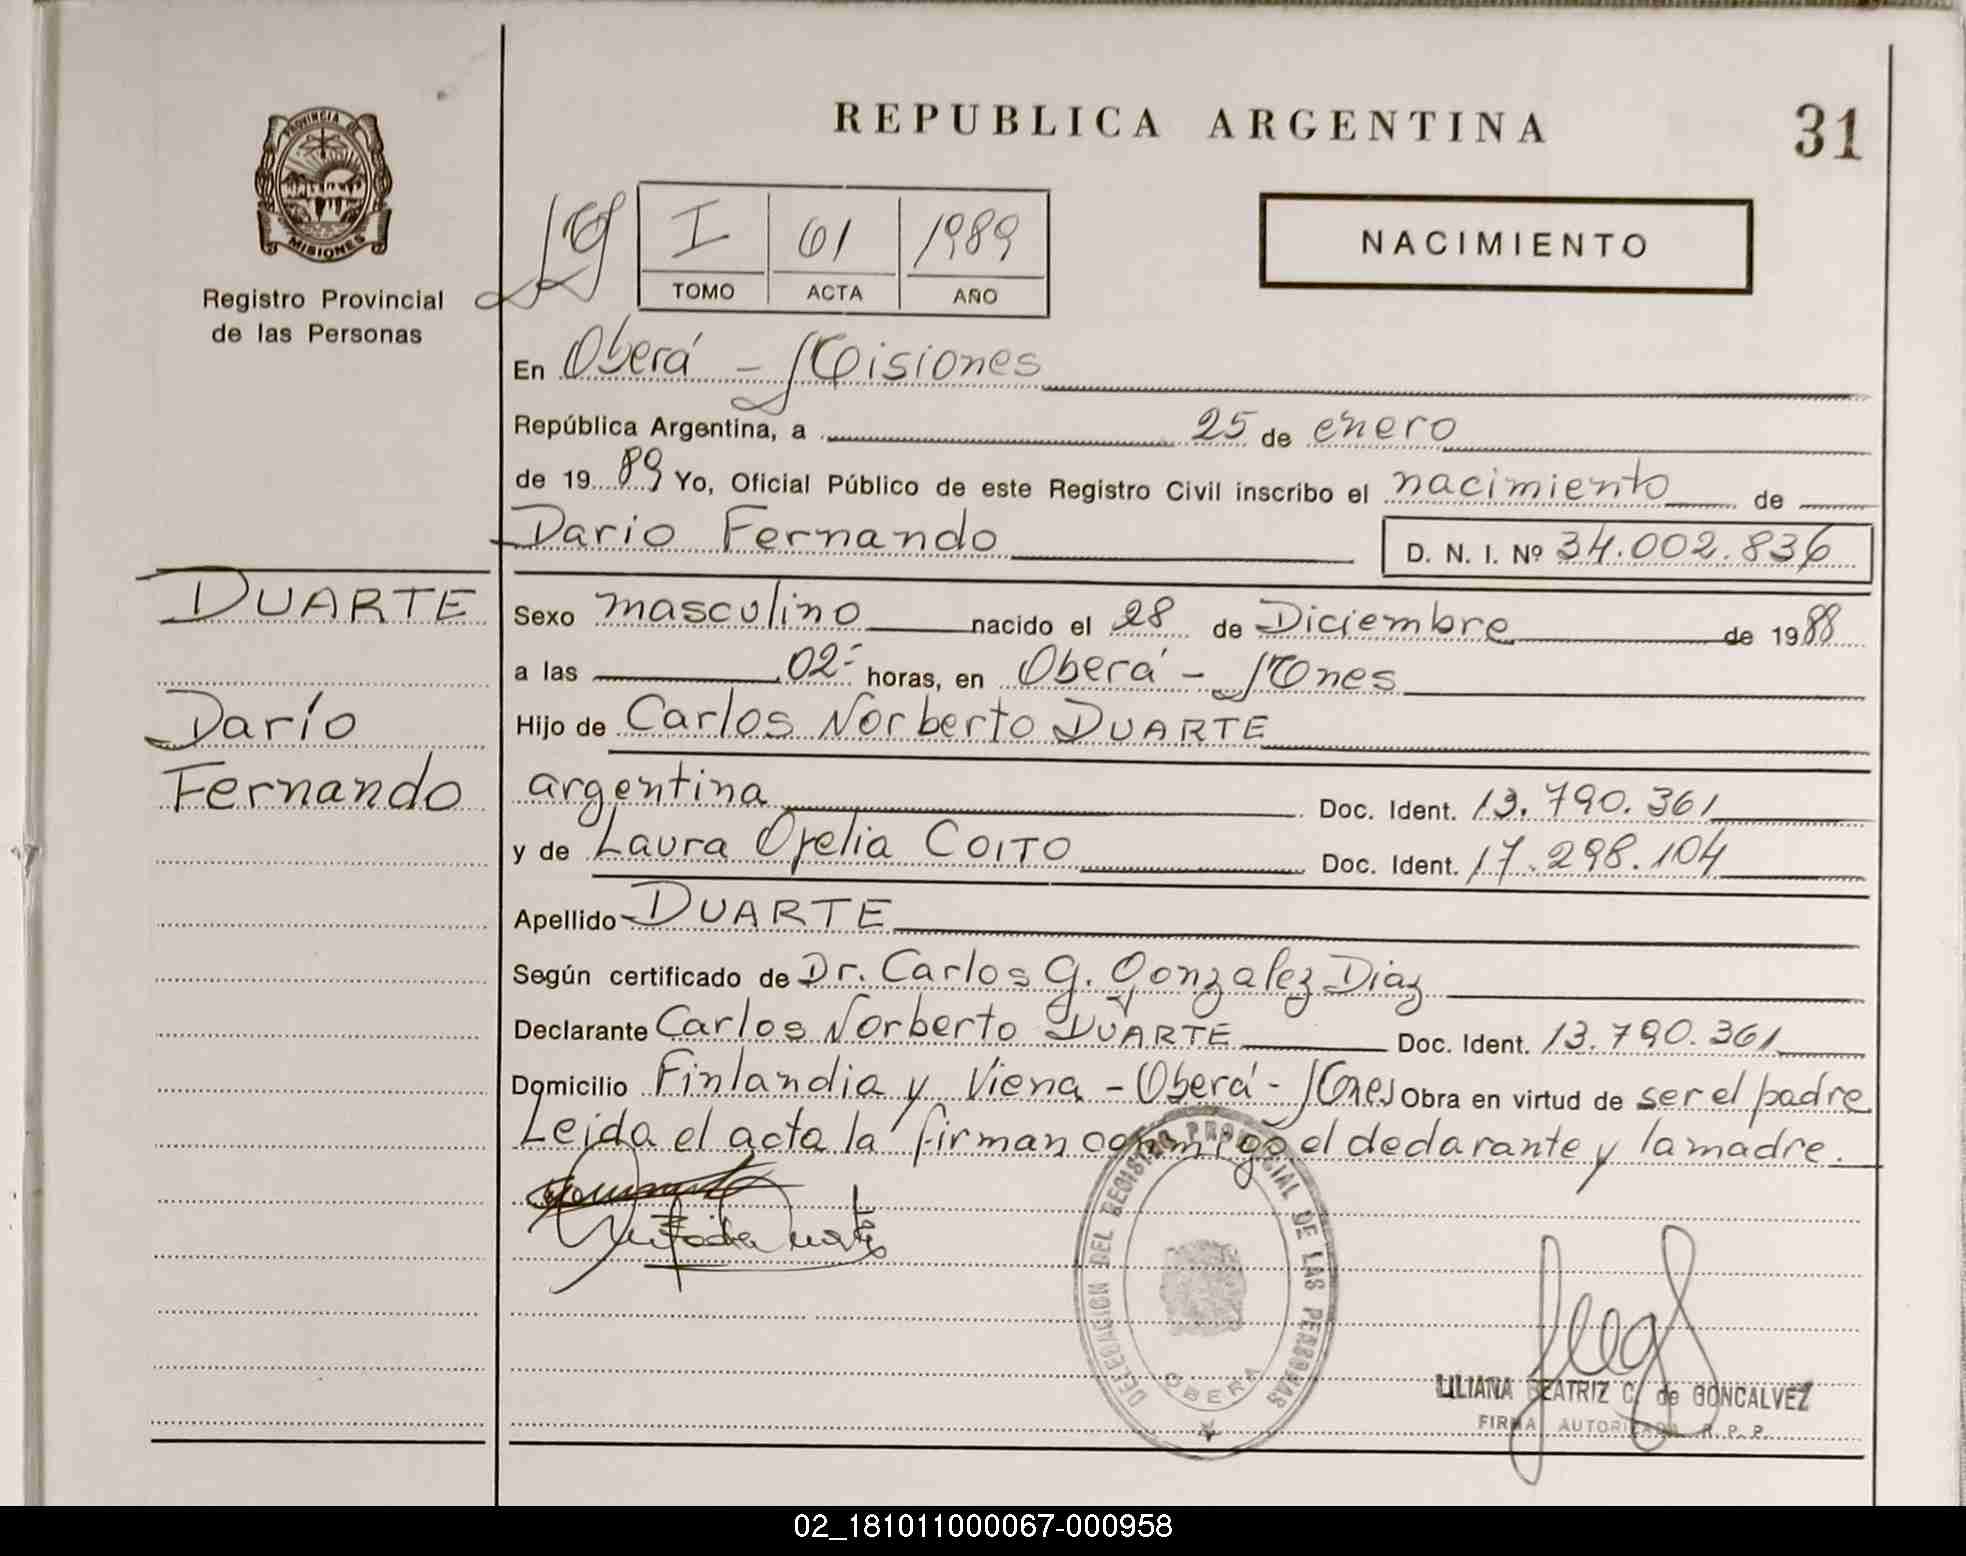 REPUBLICA ARGENTINA
31
PROVINCIA DE
MISIONES
Registro Provincial
de las Personas
I 61 1989
TOMO ACTA AÑO
NACIMIENTO
En Oberá - Misiones
República Argentina, a 25 de enero
de 1989 Yo, Oficial Público de este Registro Civil inscribo el nacimiento de
Dario Fernando D. N. I. Nº 34.002.836
DUARTE
Darío
Fernando
Sexo masculino nacido el 28 de Diciembre de 1988
a las 02- horas, en Oberá - Mnes
Hijo de Carlos Norberto DUARTE
argentina Doc. Ident. 13.790.361
y de Laura Ofelia COITO Doc. Ident. 17.298.104
Apellido DUARTE
Según certificado de Dr. Carlos G. Gonzalez Diaz
Declarante Carlos Norberto DUARTE Doc. Ident. 13.790.361
Domicilio Finlandia y Viena - Oberá - Mnes Obra en virtud de ser el padre
Leida el acta la firman conmigo el declarante y la madre.
DELEGACION DEL REGISTRO PROVINCIAL DE LAS PERSONAS
OBERA
LILIANA BEATRIZ C. de GONCALVEZ
FIRMA AUTORIZADA R. P. P.
02_181011000067-000958